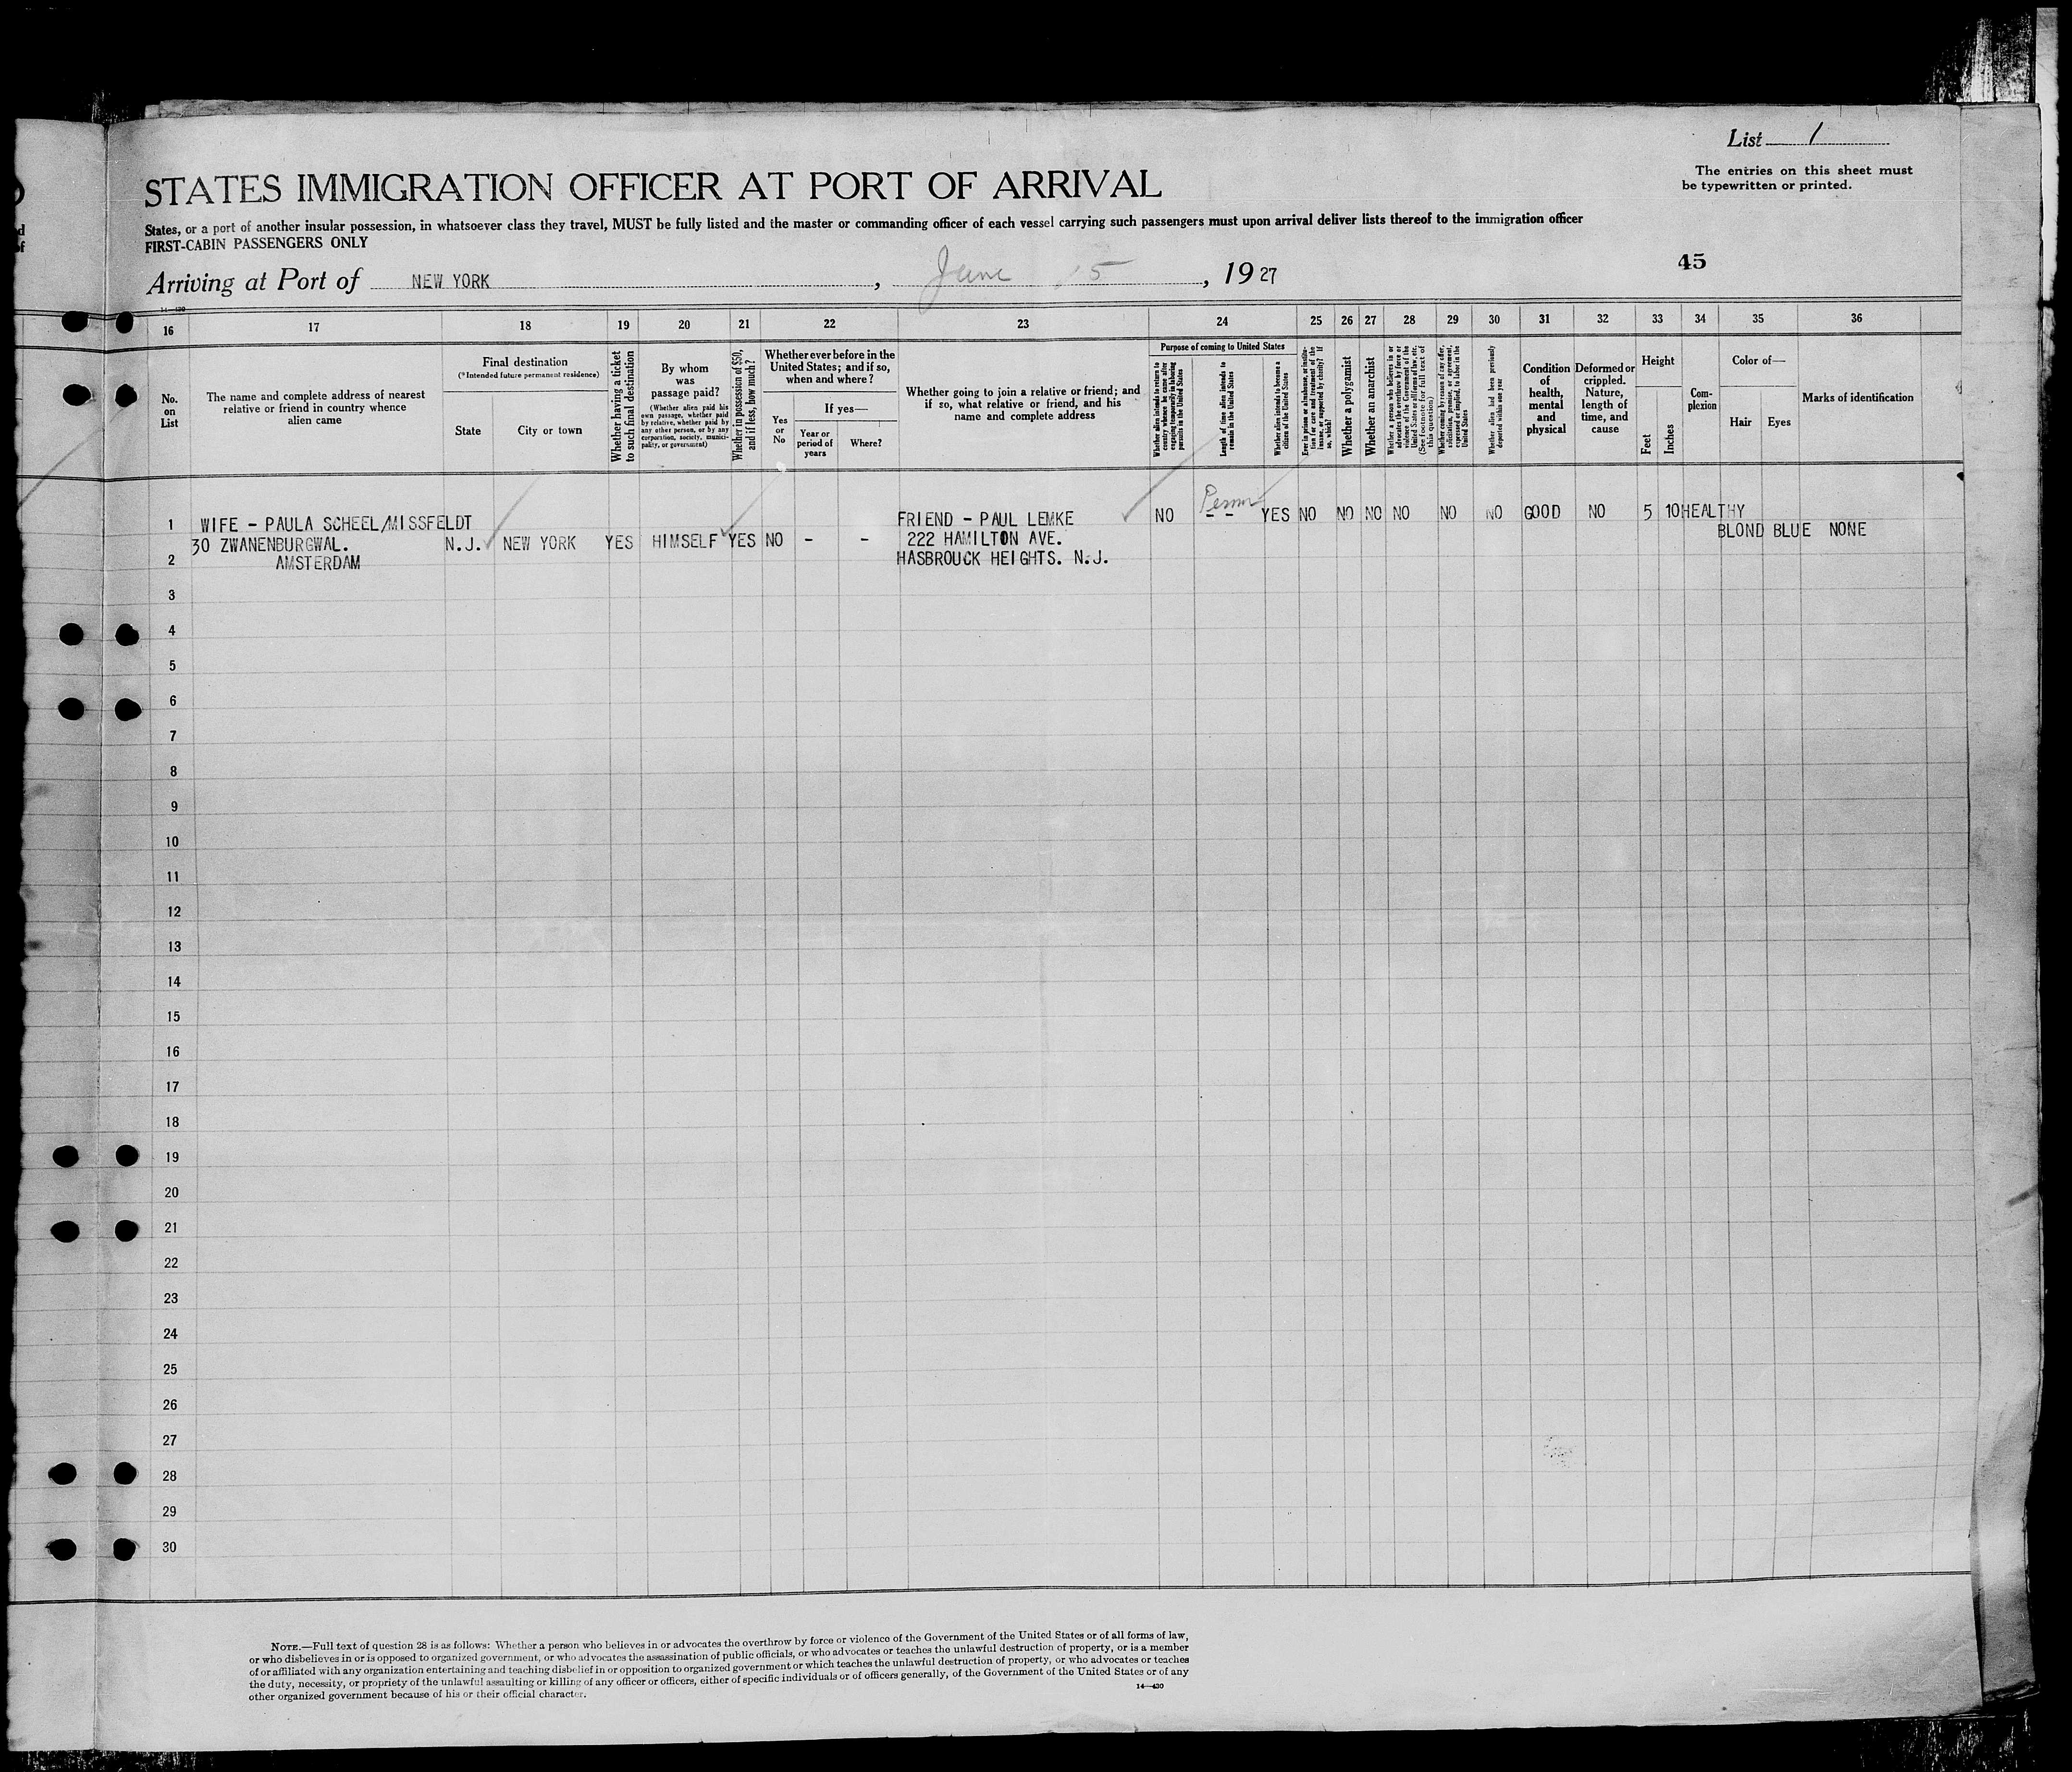 List 1
The entries on this sheet must
be typewritten or printed.
STATES IMMIGRATION OFFICER AT PORT OF ARRIVAL
States, or a port of another insular possession, in whatsoever class they travel, MUST be fully listed and the master or commanding officer of each vessel carrying such passengers must upon arrival deliver lists thereof to the immigration officer
FIRST-CABIN PASSENGERS ONLY
45
Arriving at Port of NEW YORK, June 15, 1927
14—430
16 17 18 19 20 21 22 23 24 25 26 27 28 29 30 31 32 33 34 35 36
No.
on
List
The name and complete address of nearest
relative or friend in country whence
alien came
Final destination
(*Intended future permanent residence)
State
City or town
Whether having a ticket
to such final destination
By whom
was
passage paid?
(Whether alien paid his
own passage, whether paid
by relative, whether paid by
any other person, or by any
corporation, society, munici-
pality, or government)
Whether in possession of $50,
and if less, how much?
Whether ever before in the
United States; and if so,
when and where?
Yes
or
No
If yes—
Year or
period of
years
Where?
Whether going to join a relative or friend; and
if so, what relative or friend, and his
name and complete address
Purpose of coming to United States
Whether alien intends to return to
country whence he came after
engaging temporarily in laboring
pursuits in the United States
Length of time alien intends to
remain in the United States
Whether alien intends to become a
citizen of the United States
Ever in prison or almshouse, or institu-
tion for care and treatment of the
insane, or supported by charity? If
so, which?
Whether a polygamist
Whether an anarchist
Whether a person who believes in or
advocates the overthrow by force or
violence of the Government of the
United States or all forms of law, etc.
(See footnote for full text of
this question)
Whether coming by reason of any offer,
solicitation, promise, or agreement,
expressed or implied, to labor in the
United States
Whether alien had been previously
deported within one year
Condition
of
health,
mental
and
physical
Deformed or
crippled.
Nature,
length of
time, and
cause
Height
Feet
Inches
Com-
plexion
Color of—
Hair
Eyes
Marks of identification
Perm
1 WIFE - PAULA SCHEEL/MISSFELDT FRIEND - PAUL LEMKE NO - - YES NO NO NO NO NO NO GOOD NO 5 10 HEALTHY
30 ZWANENBURGWAL. N.J. NEW YORK YES HIMSELF YES NO - - 222 HAMILTON AVE. BLOND BLUE NONE
2 AMSTERDAM HASBROUCK HEIGHTS. N.J.
3
4
5
6
7
8
9
10
11
12
13
14
15
16
17
18
19
20
21
22
23
24
25
26
27
28
29
30
NOTE.—Full text of question 28 is as follows: Whether a person who believes in or advocates the overthrow by force or violence of the Government of the United States or of all forms of law,
or who disbelieves in or is opposed to organized government, or who advocates the assassination of public officials, or who advocates or teaches the unlawful destruction of property, or is a member
of or affiliated with any organization entertaining and teaching disbelief in or opposition to organized government or which teaches the unlawful destruction of property, or who advocates or teaches
the duty, necessity, or propriety of the unlawful assaulting or killing of any officer or officers, either of specific individuals or of officers generally, of the Government of the United States or of any
other organized government because of his or their official character.
14—430